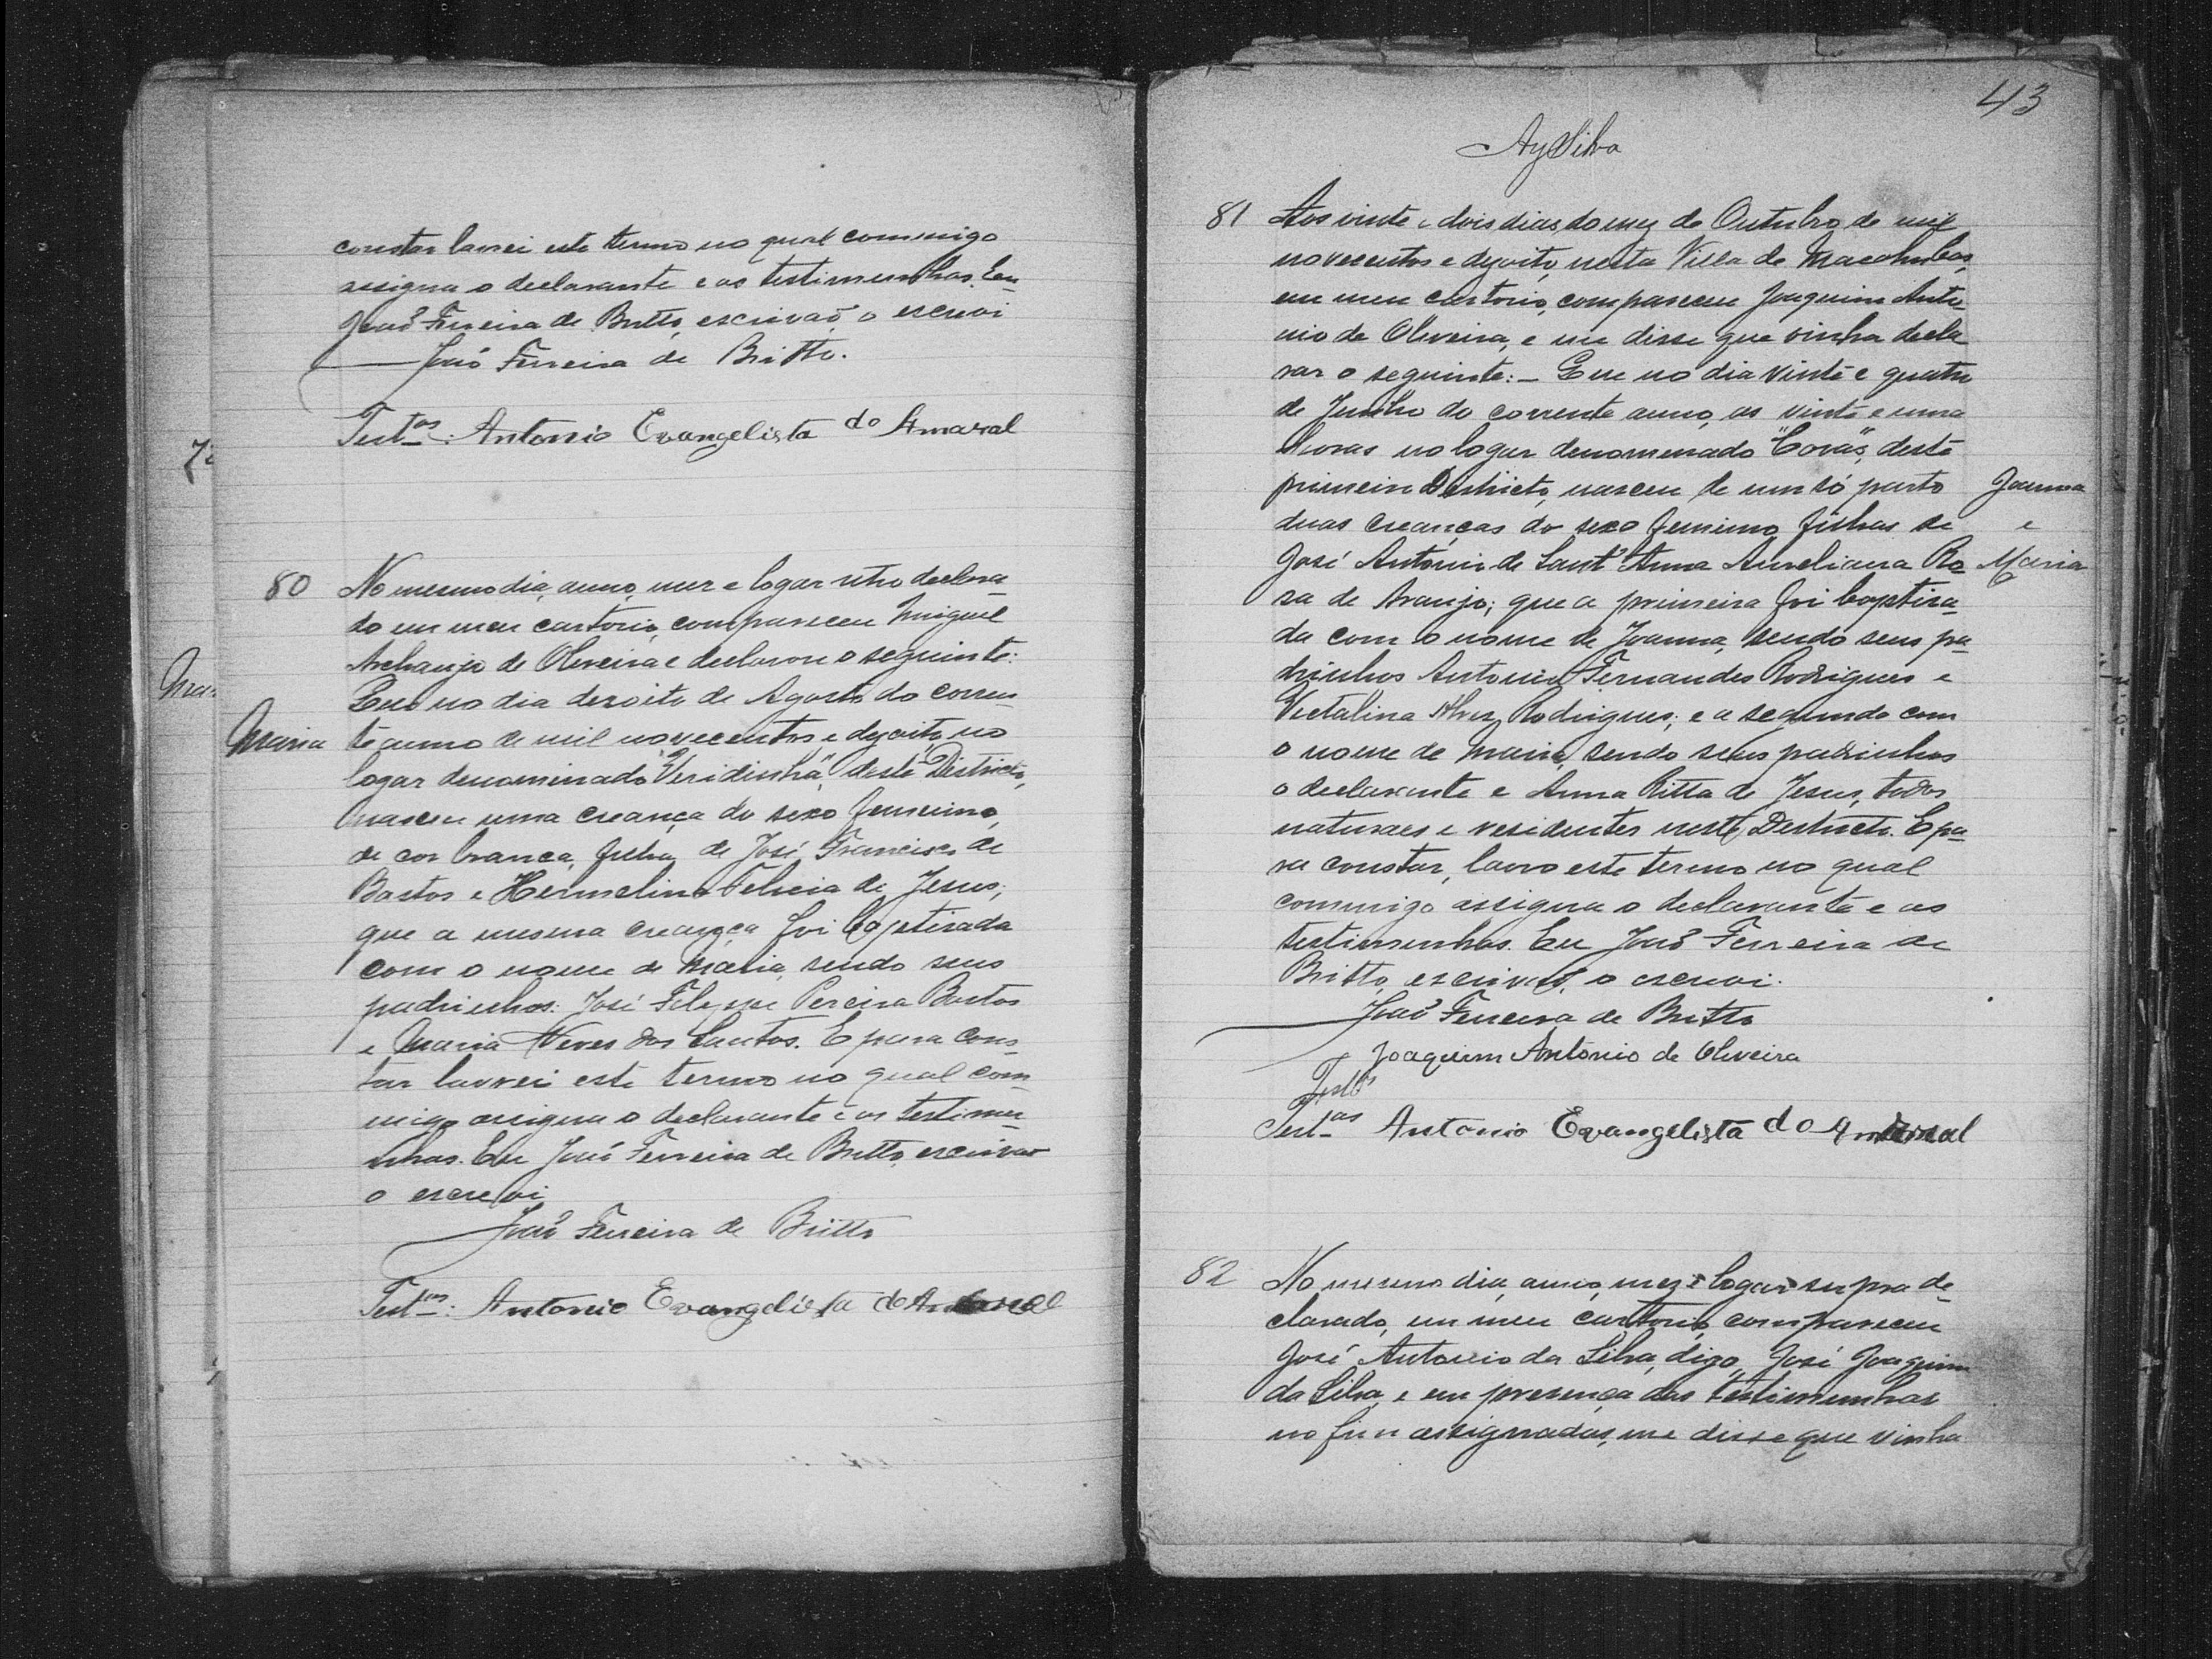 constar lavrei este termo no qual commigo
assigna o declarante e as testimunhas. Eu
João Ferreira de Britto, escrivão o escrevi
João Ferreira de Britto.
Testas: Antonio Evangelista do Amaral
80 No mesmo dia, anno, mez e logar retro declara
do em meu cartorio, compareceu Miguel
Archanjo de Oliveira e declarou o seguinte:
Que no dia dezoito de Agosto do corren
Maria te anno de mil novecentos e dezoito, no
logar denominado "Veridinha", deste Districto,
nasceu uma creança do sexo feminino,
de cor branca, filha de José Francisco de
Bastos e Hermelina Felicia de Jesus;
que a mesma creança foi baptisada
com o nome de Maria, sendo seus
padrinhos: José Felippe Pereira Bastos
e Maria Neves dos Santos. E para cons-
tar lavrei este termo no qual com
migo assigna o declarante e as testimu-
nhas. Eu João Ferreira de Britto, escrivão
o escrevi
João Ferreira de Britto
Testas: Antonio Evangelista do Amaral
43
AySilva
81 Aos vinte e dois dias do mez de Outubro de mil
novecentos e dezoito, nesta Villa de Macahubas,
em meu cartorio, compareceu Joaquim Anto
nio de Oliveira, e me disse que vinha decla
rar o seguinte: - Que no dia vinte e quatro
de Junho do corrente anno, as vinte e uma
horas no logar denominado "Covas", deste
primeiro Districto, nasceu de um só parto Joanna
duas creanças do sexo feminino, filhas de e
José Antonio de Sant'Anna Aureliana Ro- Maria
sa de Araujo; que a primeira foi baptisa-
da com o nome de Joanna, sendo seus pa-
drinhos Antonio Fernandes Rodrigues e
Victalina Alves Rodrigues; e a segunda com
o nome de Maria, sendo seus padrinhos
o declarante e Anna Ritta de Jesus, todos
naturaes e residentes neste Districto. E pa-
ra constar, lavro este termo no qual
commigo assigna o declarante e as
testimunhas. Eu João Ferreira de
Britto, escrivão, o escrevi.
João Ferreira de Britto
Joaquim Antonio de Oliveira
Testas
Testas Antonio Evangelista do Amaral
82 No mesmo dia, anno, mez e logar supra de
clarado, em meu cartorio, compareceu
José Antonio da Silva, digo, José Joaquim
da Silva, e em presença das testimunhas
no fim assignadas, me disse que vinha